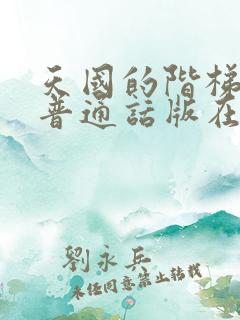 天國的階梯
普通話版在
劉永兵
未经同意禁止转载